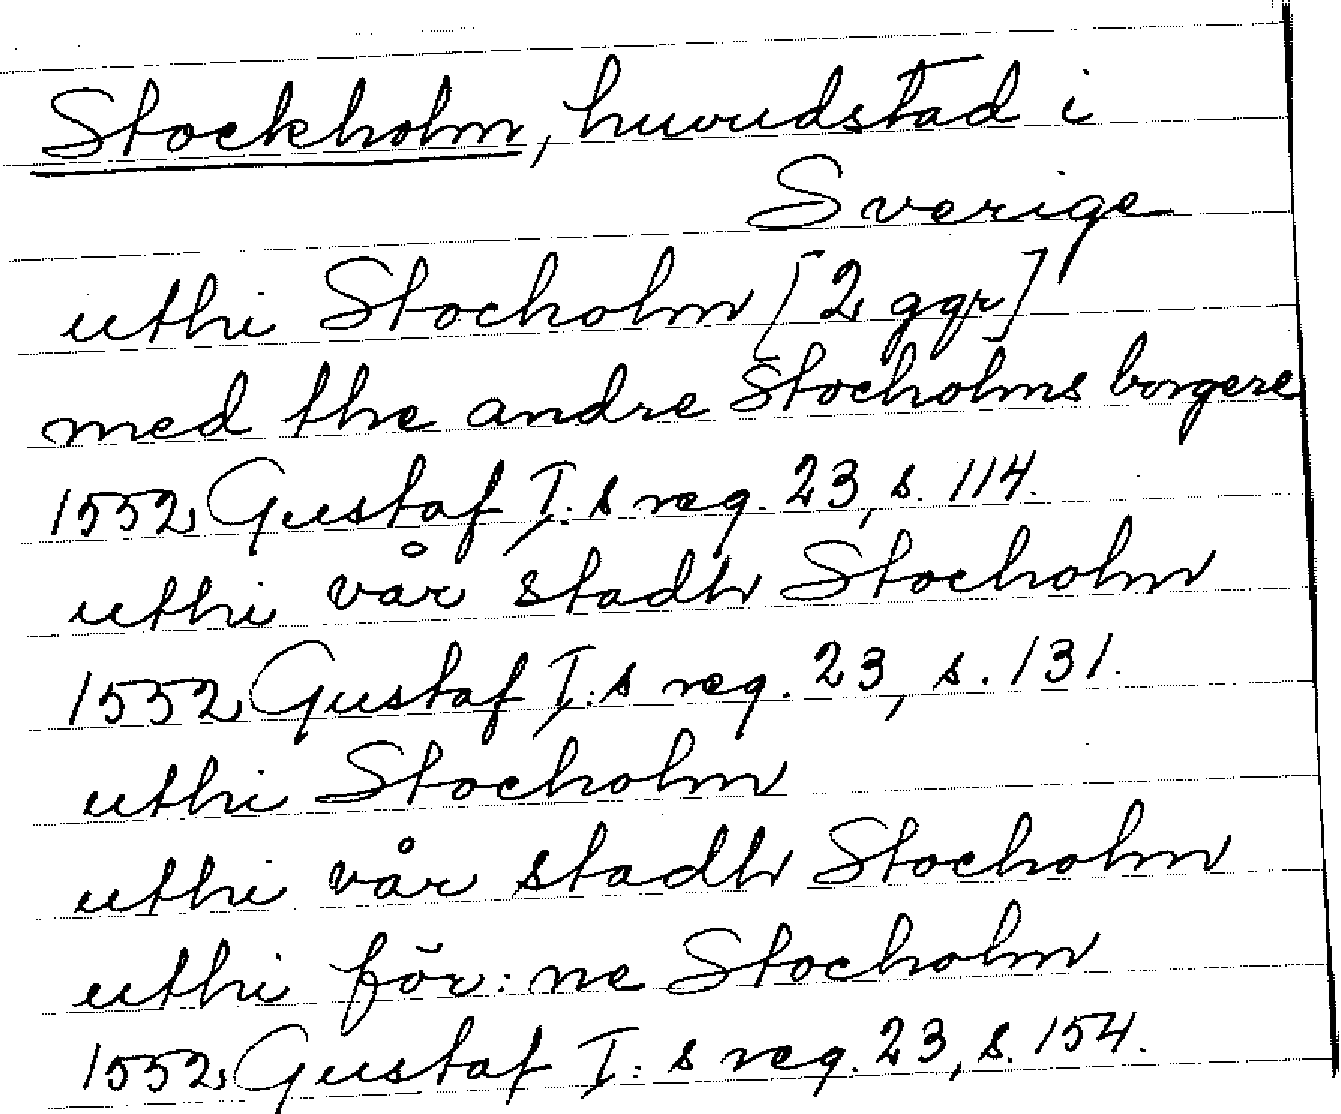 Stockholm, huvudstad i
Sverige
uthi Stocholm [2 ggr]
med the andre Stocholms borgere
1552 Gustaf I:s reg. 23, s. 114.
uthi vår stadh Stocholm
1552 Gustaf I:s reg. 23, s. 131.
uthi Stocholm
uthi vår stadh Stocholm
uthi för:ne Stocholm
1552 Gustaf I:s reg. 23, s. 154.